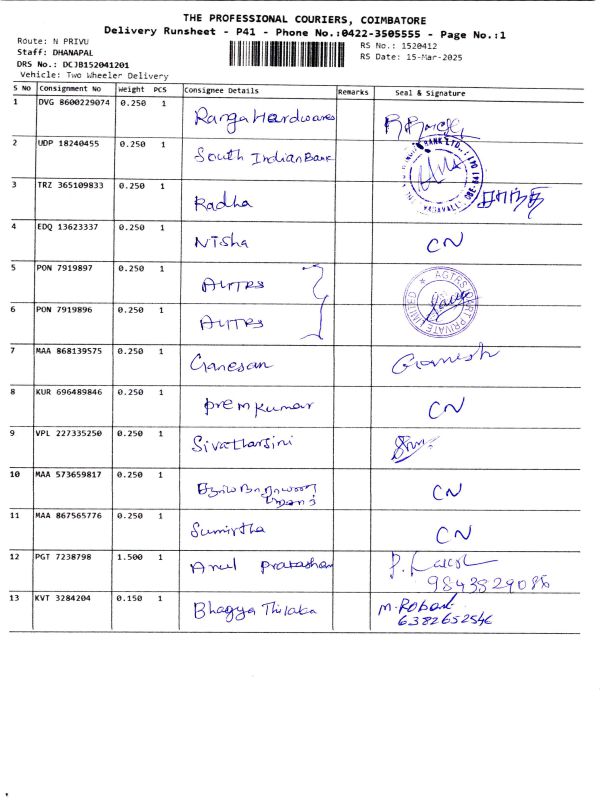 THE PROFESSIONAL COURIERS, COIMBATORE
Delivery Runsheet - P41 - Phone No.:0422-3505555 - Page No.:1
Route: N PRIVU
Staff: DHANAPAL
DRS No.: DCJB152041201
Vehicle: Two Wheeler Delivery
RS No.: 1520412
RS Date: 15-Mar-2025
S No Consignment No Weight PCS Consignee Details Remarks Seal & Signature
1 DVG 8600229074 0.250 1 Ranga Hardwares
2 UDP 18240455 0.250 1 South Indian Bank BANK LTD.
3 TRZ 365109833 0.250 1 Radha
4 EDQ 13623337 0.250 1 Nisha CN
5 PON 7919897 0.250 1 AGTRSPRIVATE LIMITED
6 PON 7919896 0.250 1
7 MAA 868139575 0.250 1 Ganesan Ganesh
8 KUR 696489846 0.250 1 prem kumar CN
9 VPL 227335250 0.250 1 Sivatharsini
10 MAA 573659817 0.250 1 CN
11 MAA 867565776 0.250 1 Sumirtha CN
12 PGT 7238798 1.500 1 Arul prakasham
13 KVT 3284204 0.150 1 Bhagya Thilaka M. Robert
6382652546